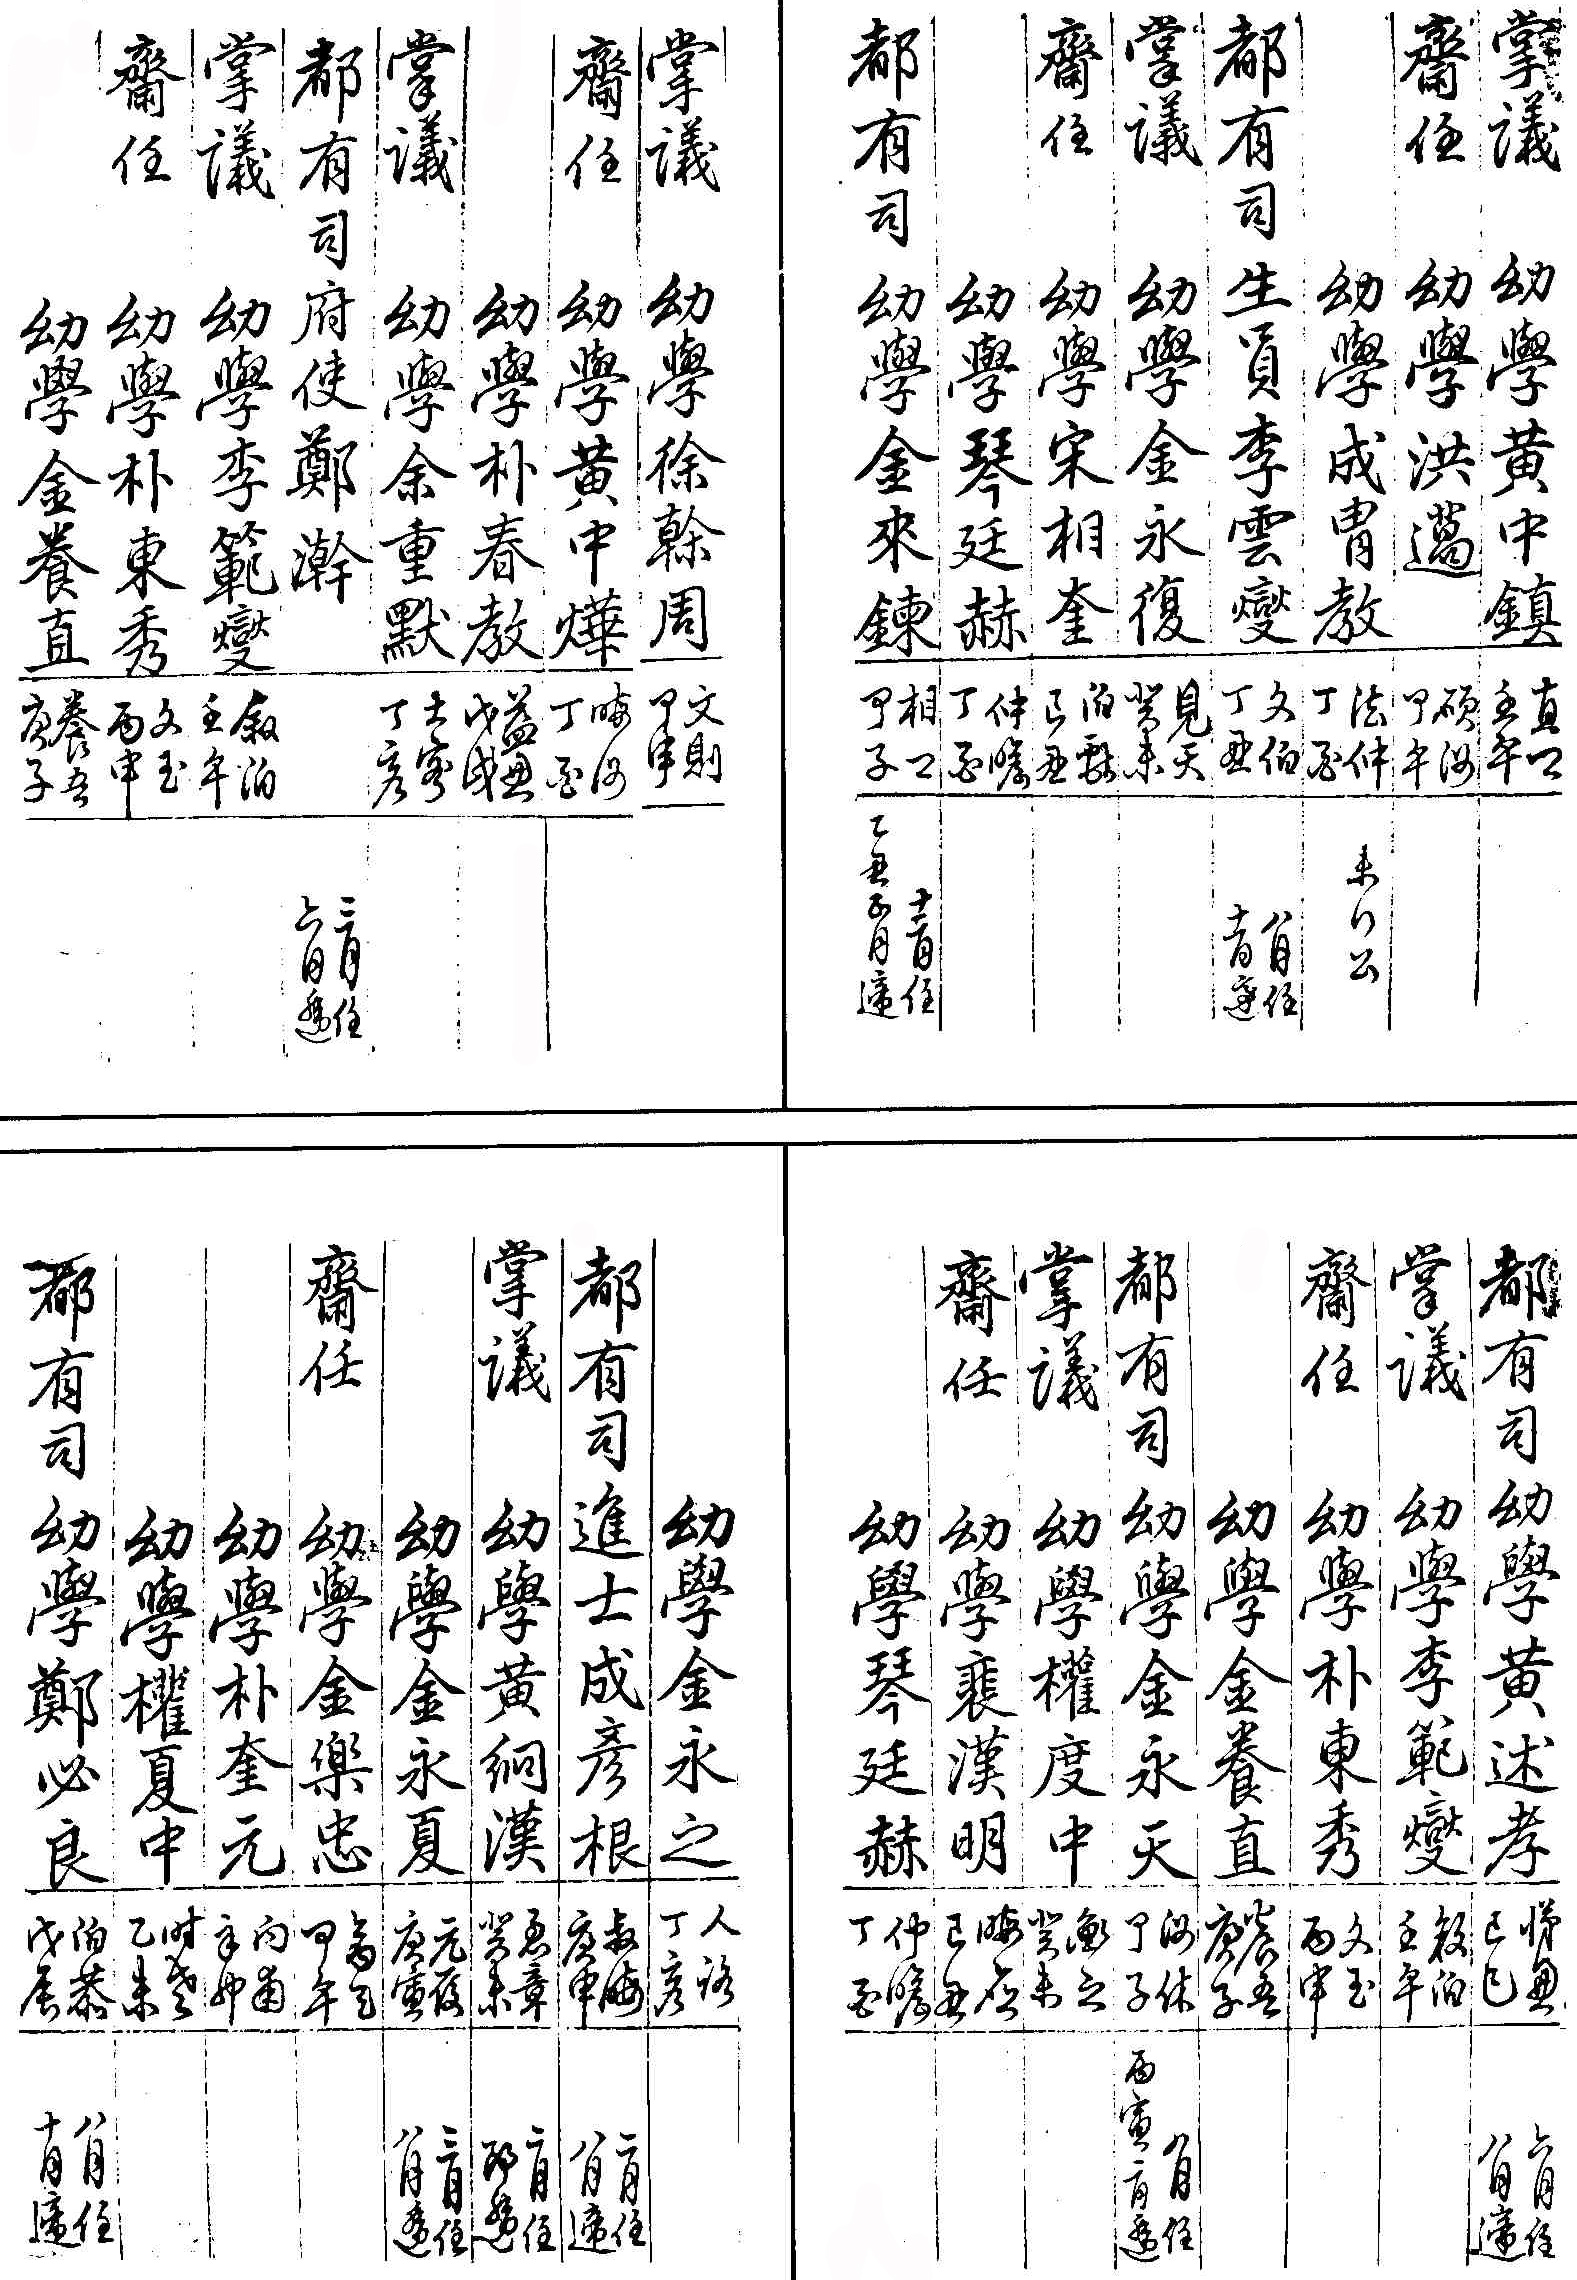 掌議 幼學 黃中鎮 直一 壬午
齋任 幼學 洪邁 碩汝 甲午
幼學 成胄教 法仲 丁酉 未行公
都有司 生員 李雲燮 文伯 丁丑 八月任 十一月遞
掌議 幼學 金永復 見天 癸未
齋任 幼學 宋相奎 己丑
幼學 琴廷赫 仲瞻 丁酉
都有司 幼學 金來鍊 相一 甲子 十一月任 乙丑正月遞
掌議 幼學 徐榦周 文則 甲申
齋任 幼學 黃中燁 晦汝 丁酉
幼學 朴春教 益兼 戊戌
掌議 幼學 余重默 士客 丁亥
都有司 府使 鄭澣 三月任 六月遞
掌議 幼學 李範燮 叙伯 壬午
齋任 幼學 朴東秀 文玉 丙申
幼學 金養直 養吾 庚子
都有司 幼學 黃述孝 悌兼 己巳 六月任 八月遞
掌議 幼學 李範燮 叙伯 壬午
齋任 幼學 朴東秀 文玉 丙申
幼學 金養直 養吾 庚子
都有司 幼學 金永天 汝休 甲子 八月任 丙寅二月遞
掌議 幼學 權度中 衡之 癸未
齋任 幼學 裵漢明 晦應 己丑
幼學 琴廷赫 仲瞻 丁酉
幼學 金永之 人諾 丁亥
都有司 進士 成彥根 叔晦 庚申 二月任 八月遞
掌議 幼學 黃絅漢 惡章 癸未 二月任 即遞
幼學 金永夏 元履 庚寅 三月任 八月遞
齋任 幼學 金樂忠 甲午
幼學 朴奎元 向甫 辛卯
幼學 權夏中 時叟 乙未
都有司 幼學 鄭必良 伯恭 戊辰 八月任 十月遞